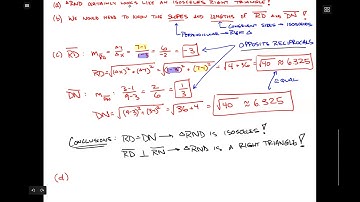 (a) △RND CERTAINLY LOOKS LIKE AN ISOSCELES RIGHT TRIANGLE!
(b) WE WOULD NEED TO KNOW THE SLOPES AND LENGTHS OF RD AND DN!
CONGRUENT SIDES → ISOSCELES
PERPENDICULAR → RIGHT △
(c) RD: m = Δy/Δx = 7-1 / = 6/2 = -3
OPPOSITE RECIPROCALS
RD = √(Δx)² + (Δy)² = √(1-3)² + (7-1)² = √4+36 = √40 ≈ 6.325
EQUAL
DN: m = 3-1/9-3 = 2/6 = 1/3
DN = √(9-3)² + (3-1)² = √36+4 = √40 ≈ 6.325
CONCLUSIONS: RD = DN → △RND IS ISOSCELES!
RD ⊥ RN → △RND IS A RIGHT TRIANGLE!
(d)